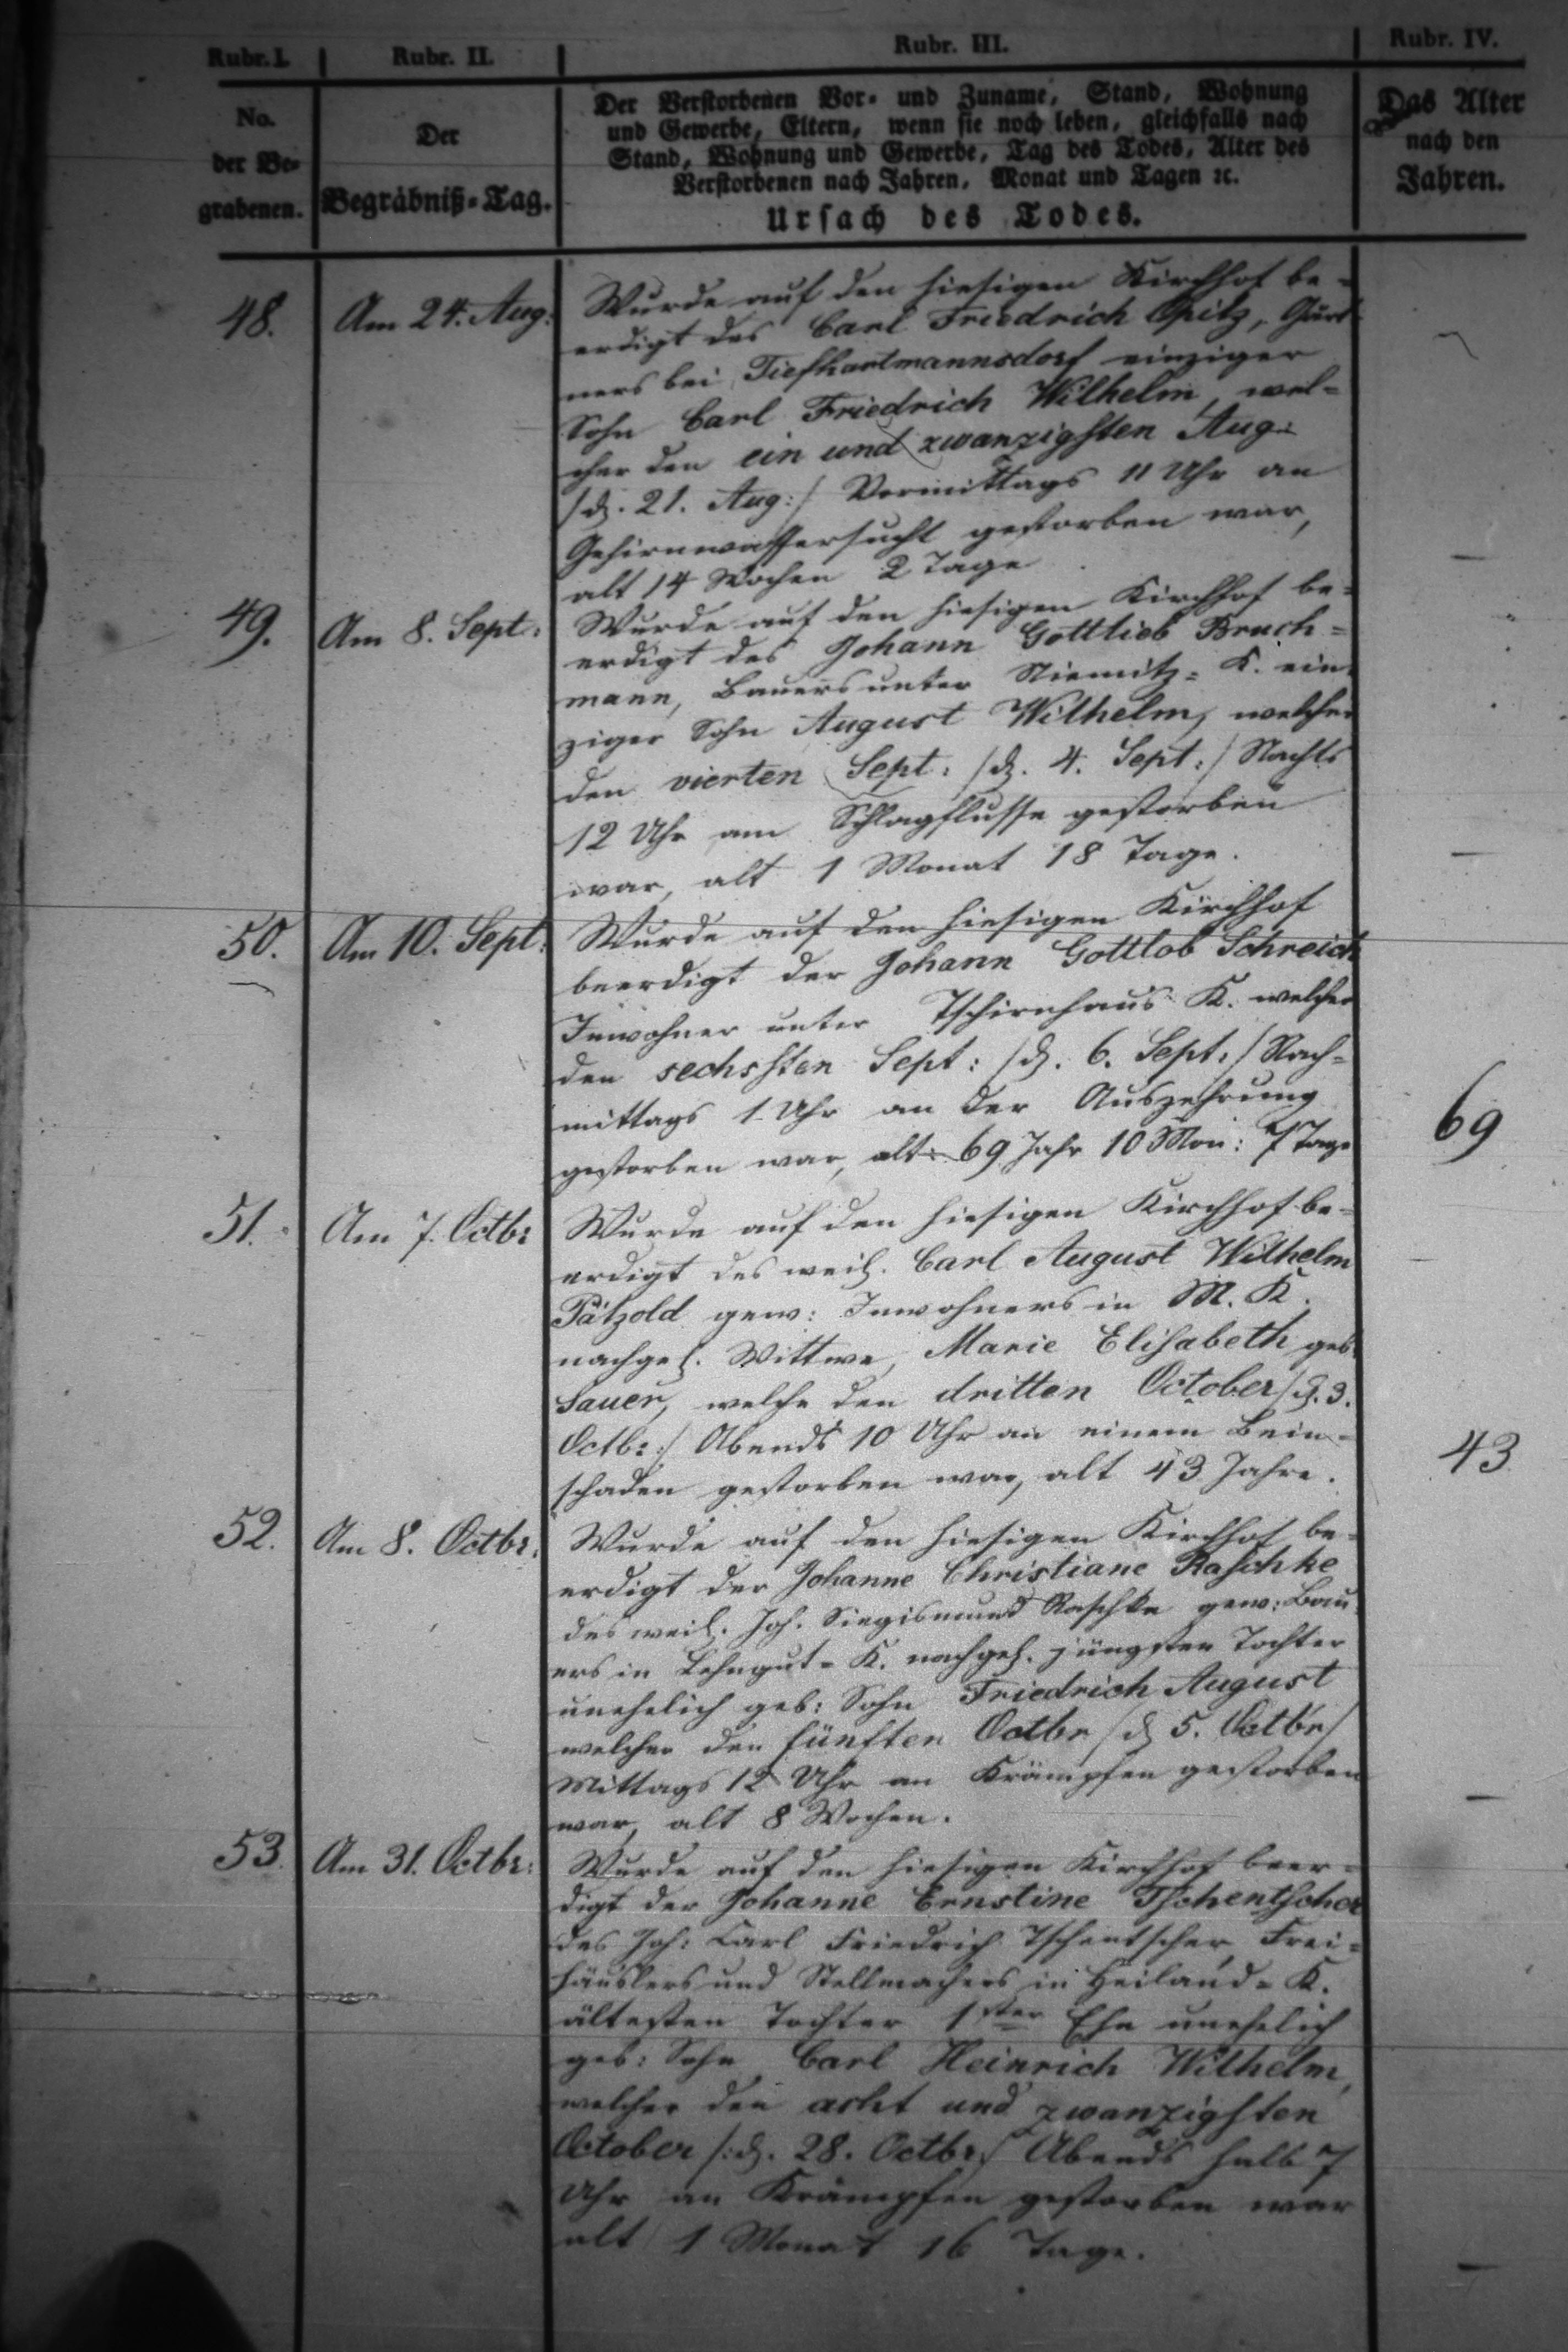 Rubr. I. Rubr. II. Rubr. III. Rubr. IV.
No. der Be-grabenen.
Der Begräbniß-Tag.
Der Verstorbenen Vor- und Zuname, Stand, Wohnung
und Gewerbe, Eltern, wenn sie noch leben, gleichfalls nach
Stand, Wohnung und Gewerbe, Tag des Todes, Alter des
Verstorbenen nach Jahren, Monat und Tagen ꝛc.
Ursach des Todes.
Das Alter
nach den
Jahren.
48. Am 24. Aug: Wurde auf den hiesigen Kirchhof be-
erdigt des Carl Friedrich Opitz, Gärt-
ners bei Tiefhartmannsdorf einziger
Sohn Carl Friedrich Wilhelm, wel-
cher den ein und zwanzigsten Aug:
/d. 21. Aug:/ Vormittags 11 Uhr an
Gehirnwassersucht gestorben war,
alt 14 Wochen 2 Tage
49. Am 8. Sept: Wurde auf den hiesigen Kirchhof be-
erdigt des Johann Gottlieb Bruch-
mann, Bauers unter Niemitz-K. ein-
ziger Sohn August Wilhelm, welcher
den vierten Sept: /d. 4. Sept:/ Nachts
12 Uhr am Schlagflusse gestorben
war, alt 1 Monat 18 Tage.
50. Am 10. Sept: Wurde auf den hiesigen Kirchhof
beerdigt der Johann Gottlob Schreich
Inwohner unter Tschirnhaus K. welcher
den sechsten Sept: /d. 6. Sept:/ Nach-
mittags 1 Uhr an der Auszehrung
gestorben war, alt: 69 Jahr 10 Mon: 7 Tage 69
51. Am 7. Octbr Wurde auf den hiesigen Kirchhof be-
erdigt des weil. Carl August Wilhelm
Pätzold gew: Inwohners in M. K.
nachgel. Wittwe, Marie Elisabeth geb.
Sauer, welche den dritten October /d. 3.
Octbr:/ Abends 10 Uhr an einem Bein-
schaden gestorben war, alt 43 Jahre. 43
52. Am 8. Octbr. Wurde auf den hiesigen Kirchhof be-
erdigt der Johanne Christiane Raschke
des weil. Joh. Siegismund Raschke gew: Bau-
ers in Lehngut-K. nachgel. jüngsten Tochter
unehelich geb: Sohn Friedrich August
welcher den fünften Octbr /d 5. Octbr/
Mittags 12 Uhr an Krämpfen gestorben
war, alt 8 Wochen.
53. Am 31. Octbr: Wurde auf den hiesigen Kirchhof beer-
digt der Johanne Ernstine Tschentscher
des Joh: Carl Friedrich Tschentscher, Frei-
häuslers und Stellmachers in Heiland-K.
ältesten Tochter 1ster Ehe unehelich
geb: Sohn Carl Heinrich Wilhelm,
welcher den acht und zwanzigsten
October /:d. 28. Octbr:/ Abends halb 7
Uhr an Krämpfen gestorben war
alt 1 Monat 16 Tage.